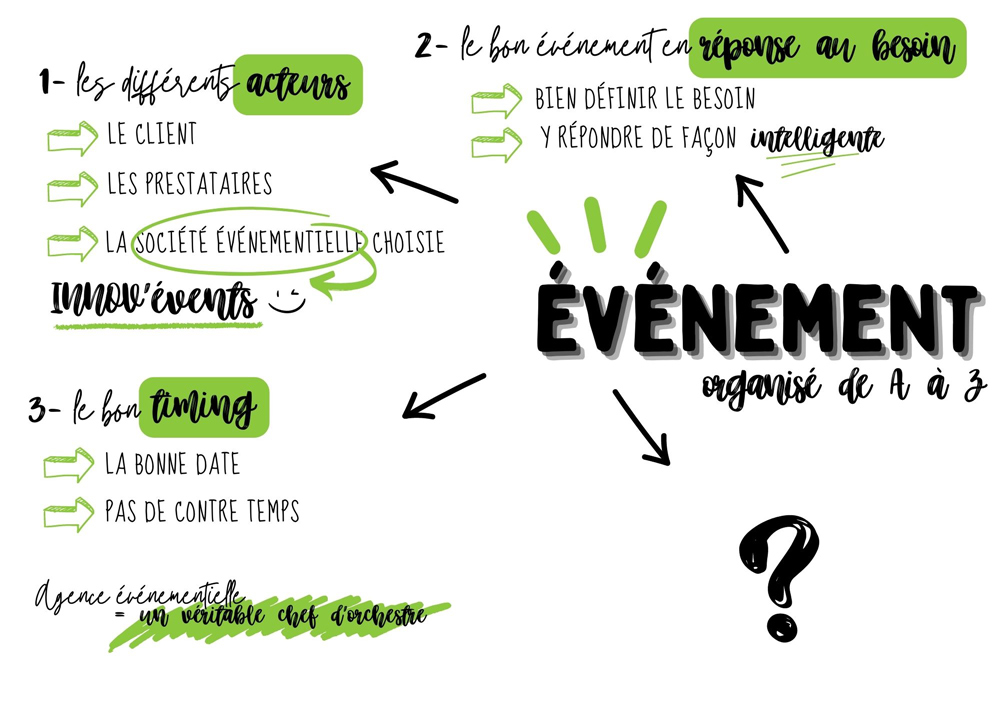 1- les différents acteurs
LE CLIENT
LES PRESTATAIRES
LA SOCIÉTÉ ÉVÉNEMENTIELLE CHOISIE
INNOV'évents
2- le bon événement en réponse au besoin
BIEN DÉFINIR LE BESOIN
Y RÉPONDRE DE FAÇON intelligente
ÉVÉNEMENT
organisé de A à Z
3- le bon timing
LA BONNE DATE
PAS DE CONTRE TEMPS
?
Agence événementielle
= un véritable chef d'orchestre